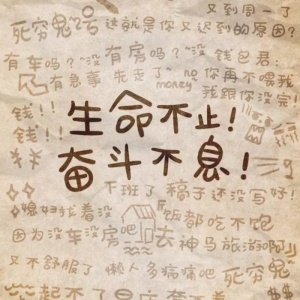 又到周一了
死穷鬼 这就是你又迟到的原因?
有车吗?没有房吗?没 钱包君:
有急事 先走了 no money 你再不喂我
我跟你没完!
钱!!
钱!!
生命不止!
奋斗不息!
下班了 稿子还没写好!
媳妇找着没 饭都吃不饱
因为没车没房吧 去神马旅游啊
又不舒服了 懒人多病痛吧 死穷鬼